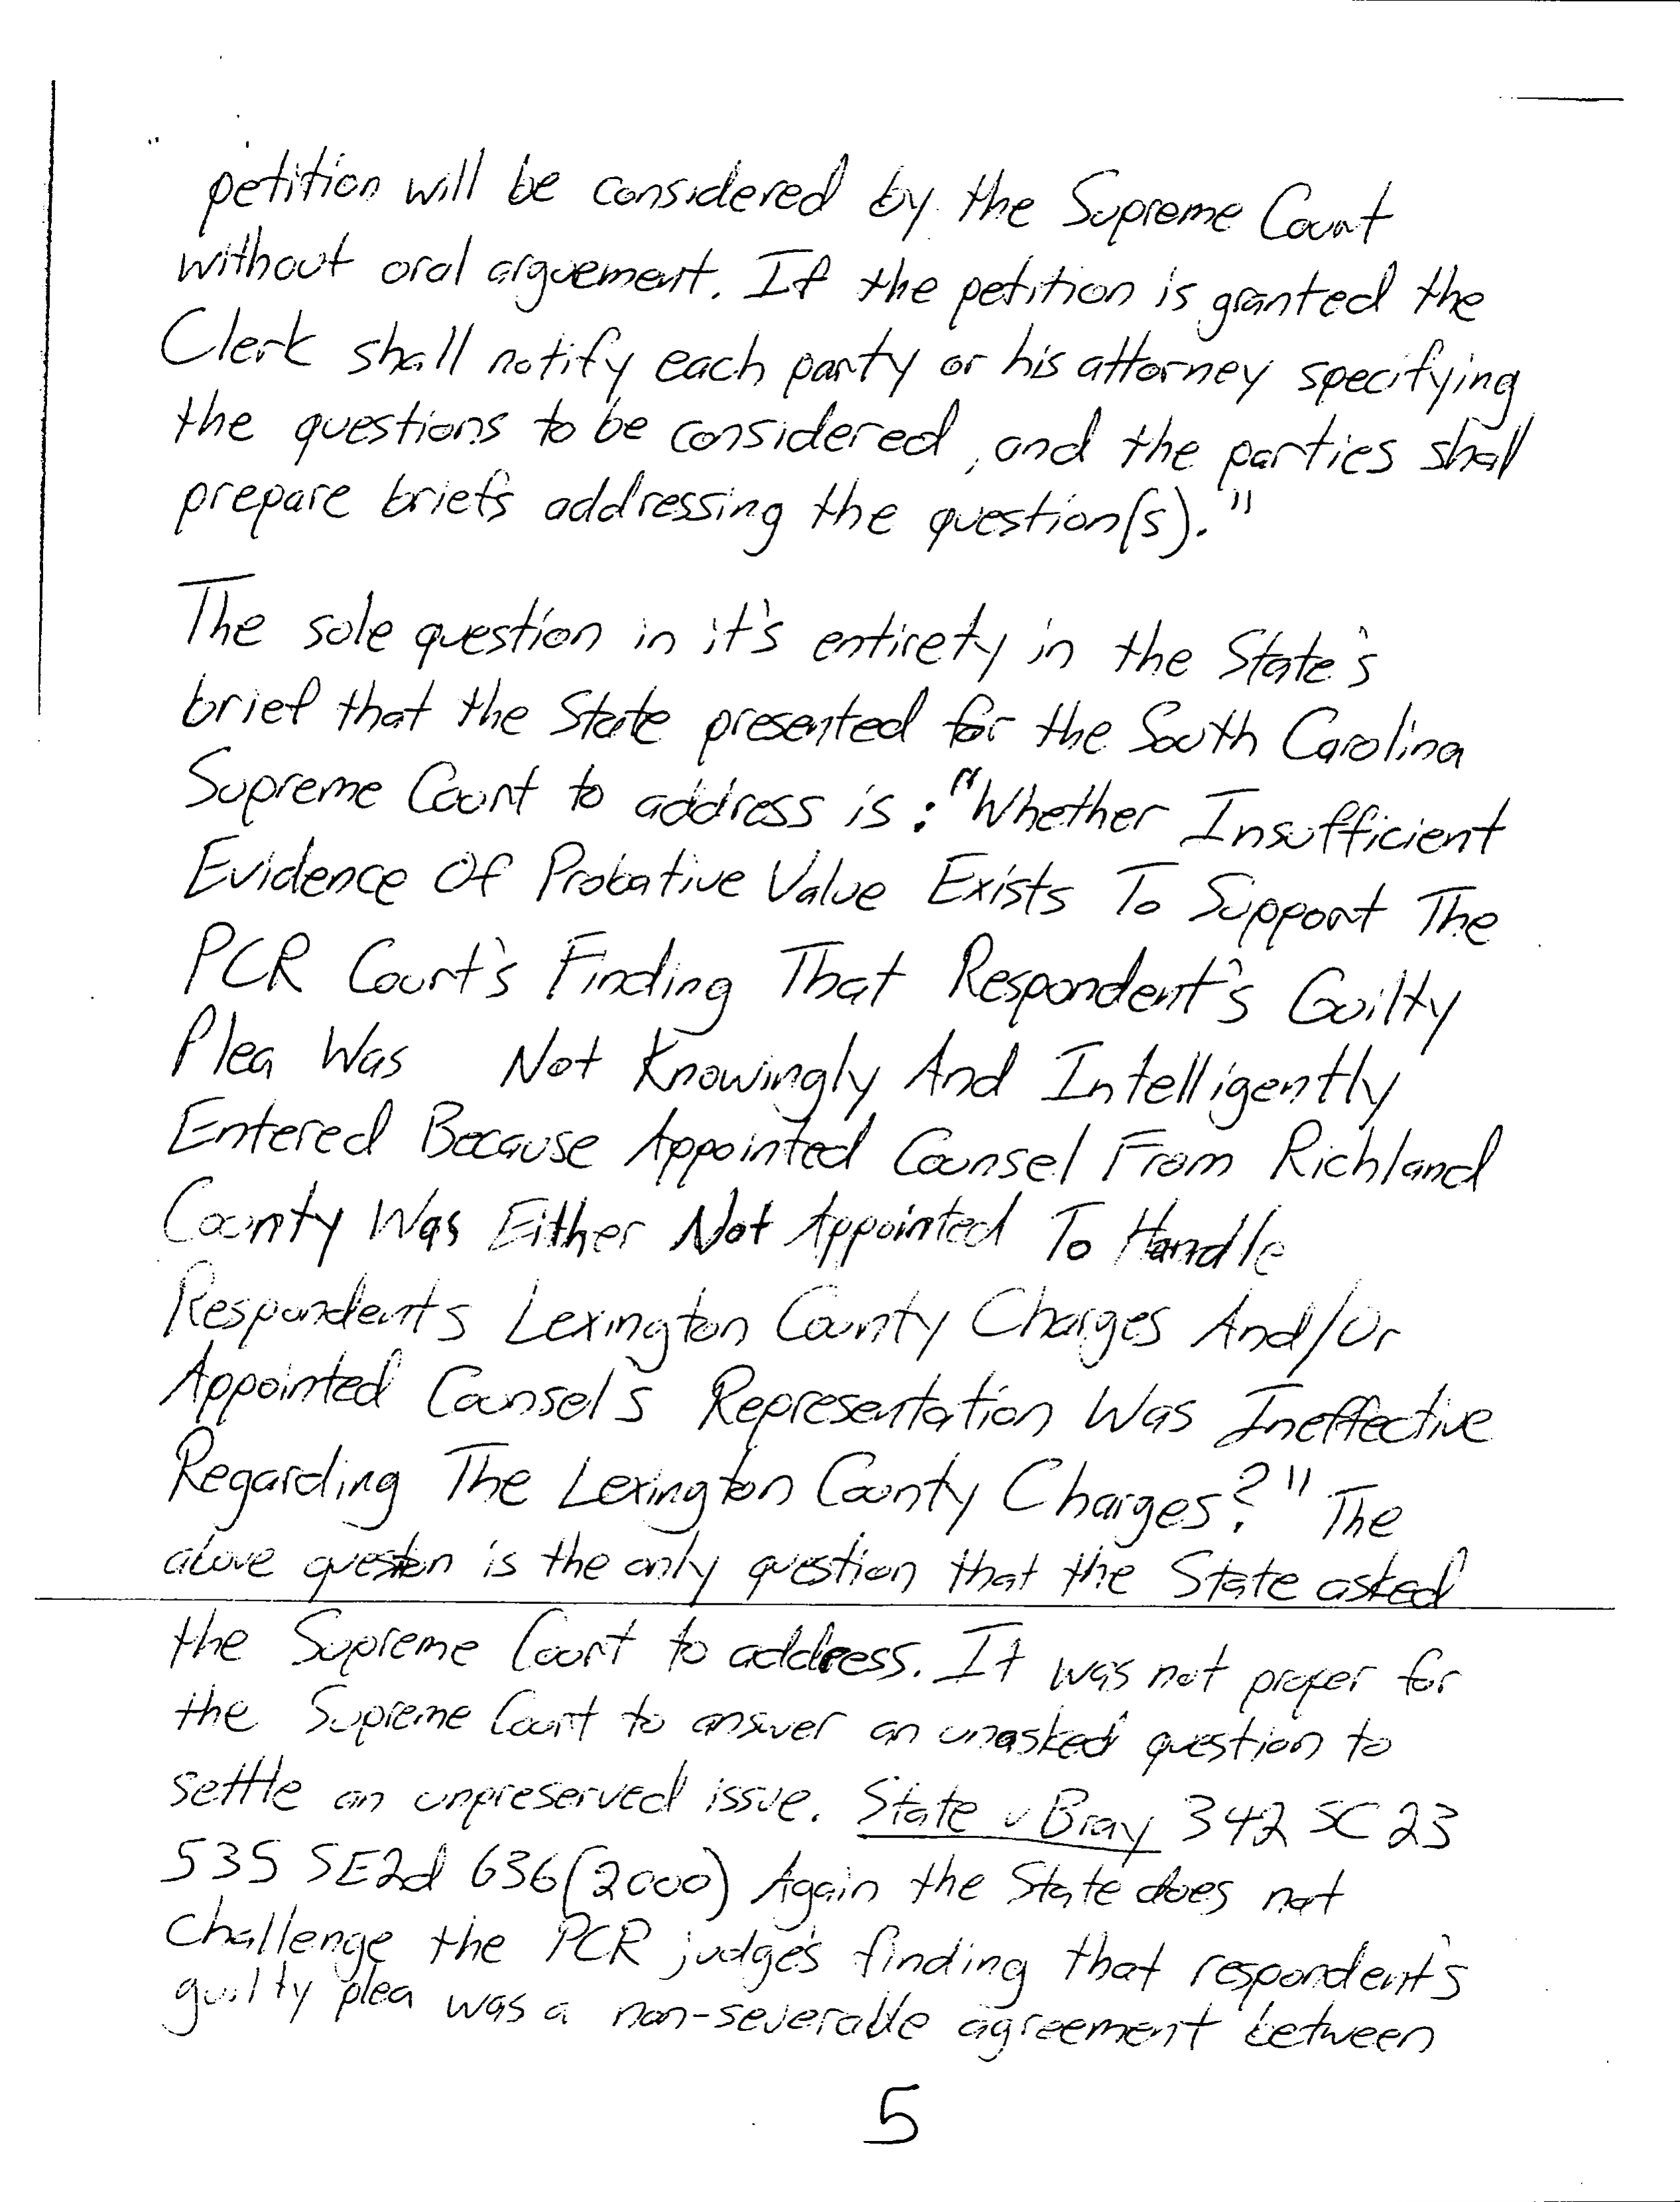 petition will be considered by the Supreme Court
without oral arguement. If the petition is granted the
Clerk shall notify each party or his attorney specifying
the questions to be considered, and the parties shall
prepare briefs addressing the question(s)."
The sole question in it's entirety in the State's
brief that the State presented for the South Carolina
Supreme Court to address is: "Whether Insufficient
Evidence Of Probative Value Exists To Support The
PCR Court's Finding That Respondent's Guilty
Plea Was Not Knowingly And Intelligently
Entered Because Appointed Counsel From Richland
County Was Either Not Appointed To Handle
Respondents Lexington County Charges And/Or
Appointed Counsel's Representation Was Ineffective
Regarding The Lexington County Charges?" The
above question is the only question that the State asked
the Supreme Court to address. It was not proper for
the Supreme Court to answer an unasked question to
settle an unpreserved issue. State v Bray 342 SC 23
535 SE2d 636 (2000) Again the State does not
challenge the PCR judge's finding that respondent's
guilty plea was a non-severable agreement between
5